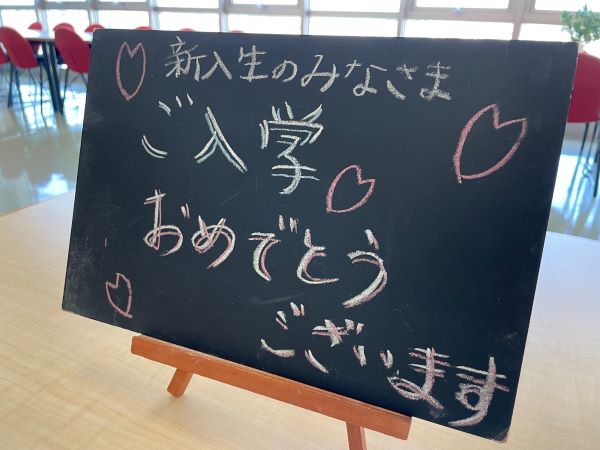 新入生のみなさま
ご入学
おめでとう
ございます